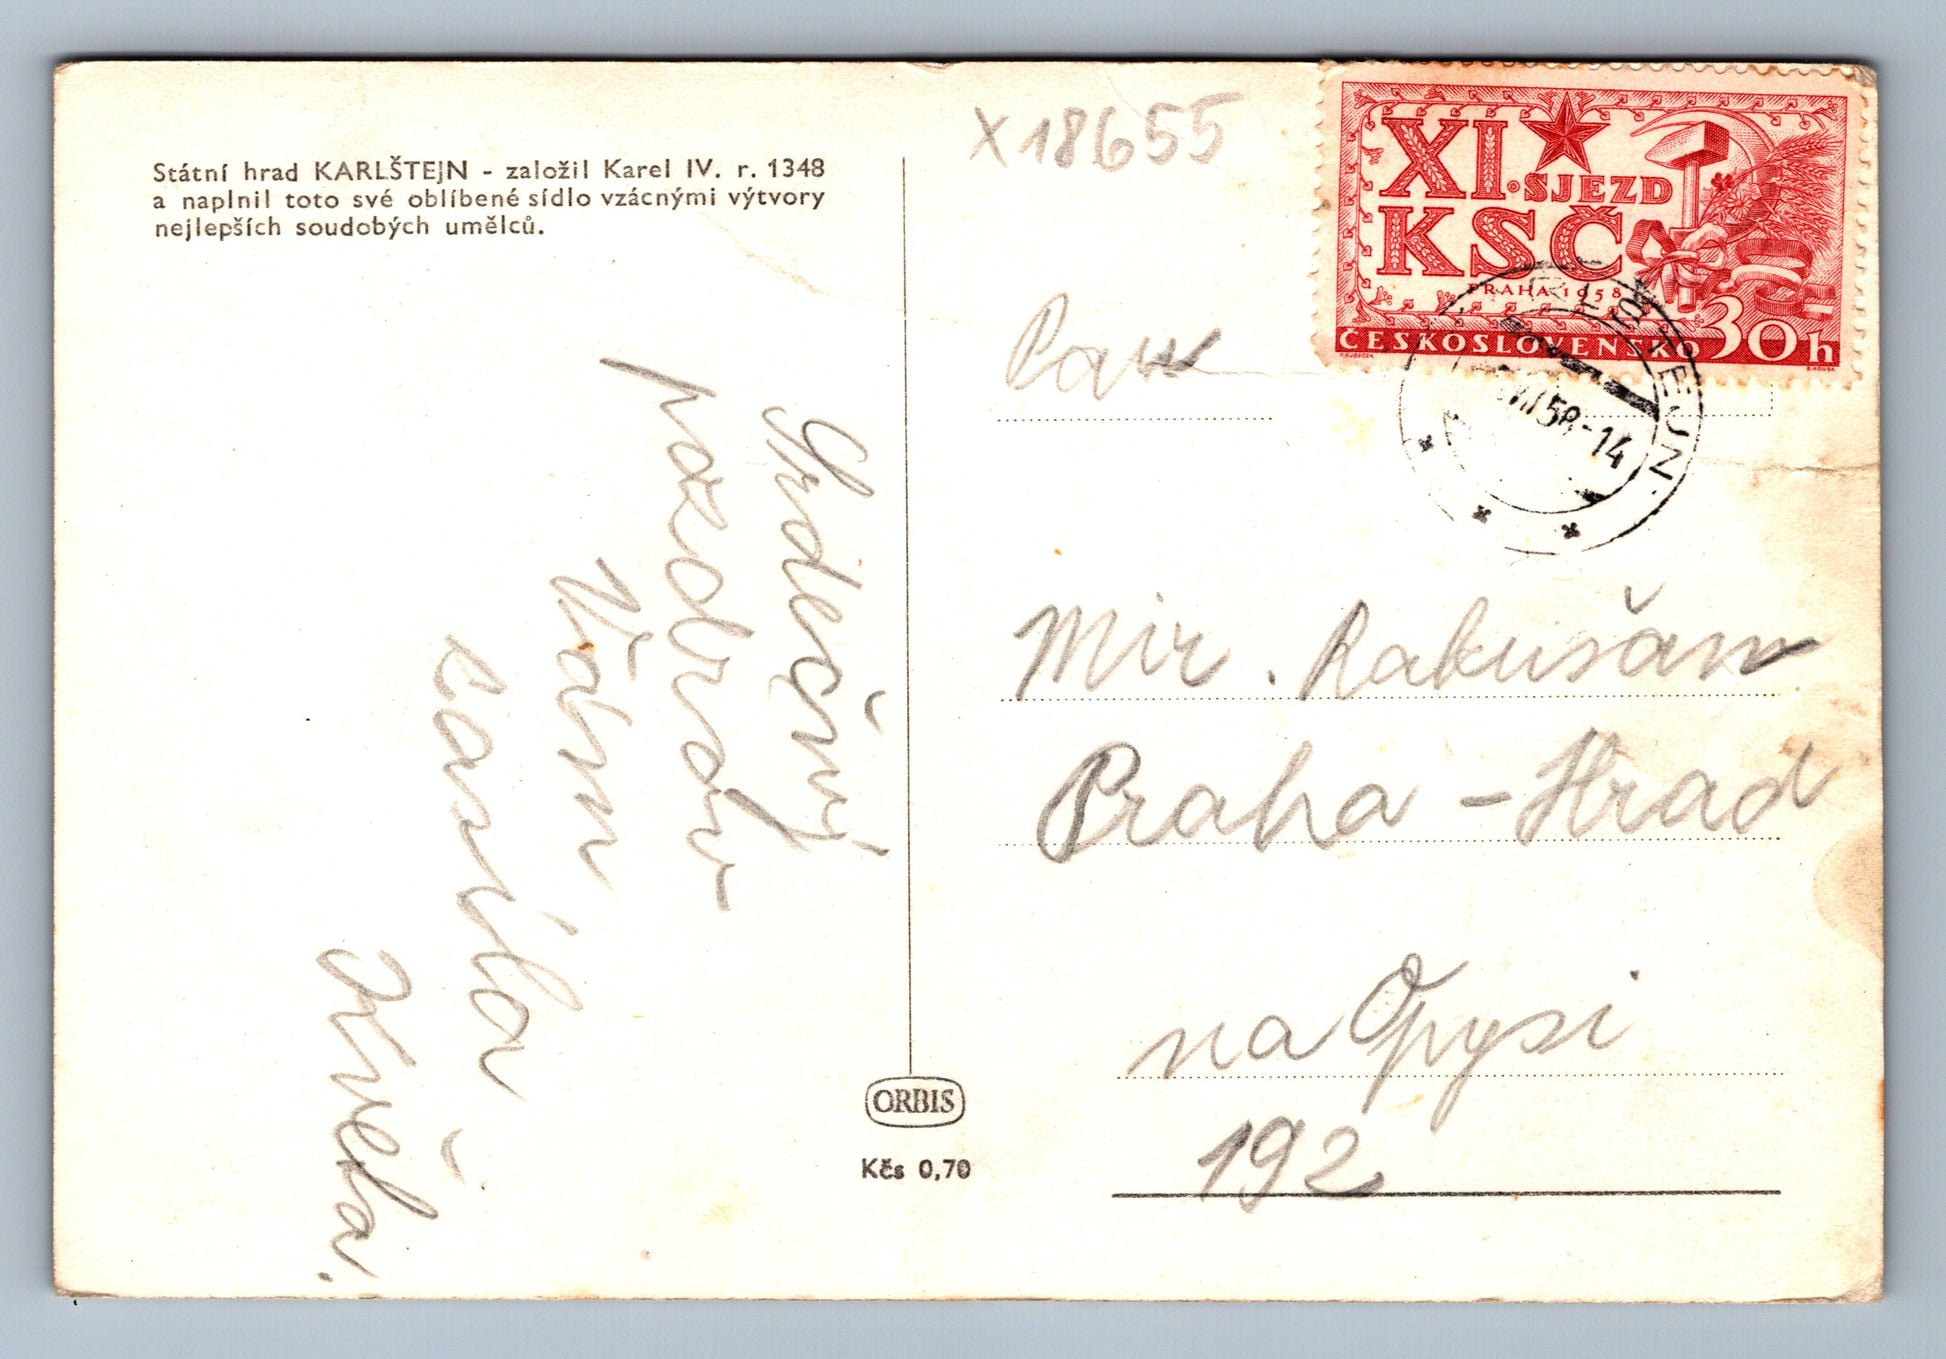 Státní hrad KARLŠTEJN - založil Karel IV. r. 1348
a naplnil toto své oblíbené sídlo vzácnými výtvory
nejlepších soudobých umělců.
Srdečný
pozdrav
Vám
Květa.
ORBIS
Kčs 0,70
X 18655
XI. SJEZD
KSČ
PRAHA 1958
ČESKOSLOVENSKO 30h
KARLŠTEJN
58-14
Pan
Mir. Rakušan
Praha - Hrad
na Opysi
192